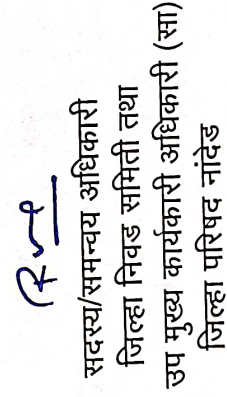 सदस्य/समन्वय अधिकारी
जिल्हा निवड समिती तथा
उप मुख्य कार्यकारी अधिकारी (सा)
जिल्हा परिषद नांदेड